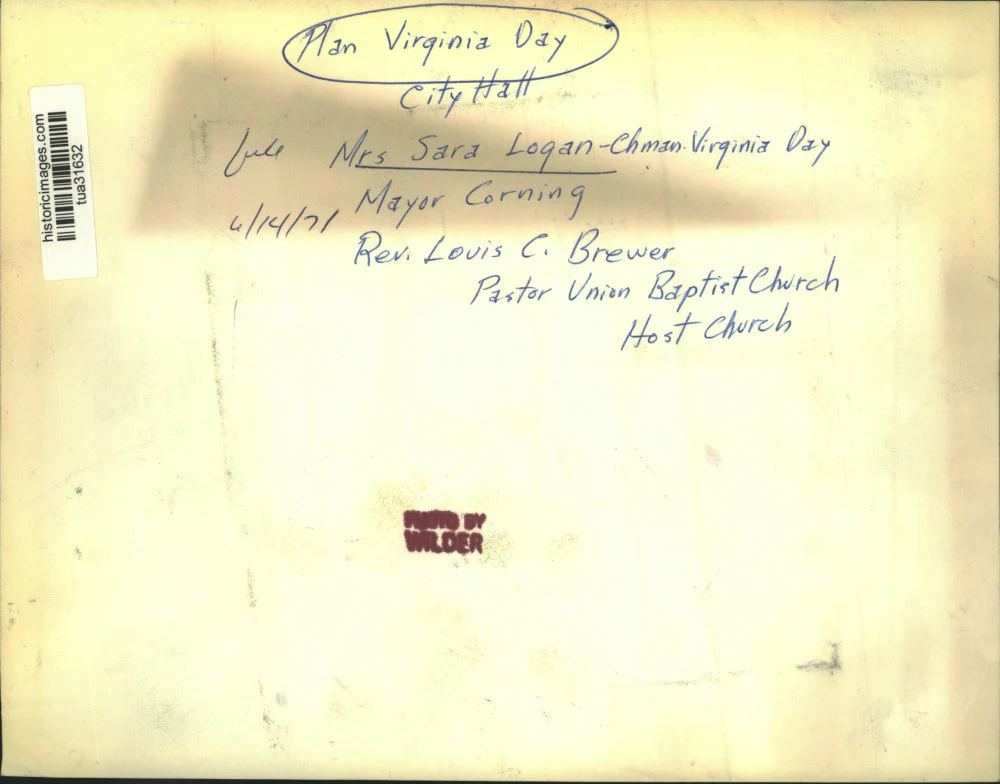 Plan Virginia Day
City Hall
file Mrs Sara Logan-Chman-Virginia Day
6/14/71 Mayor Corning
Rev. Louis C. Brewer
Pastor Union Baptist Church
Host Church
historicimages.com
tua31632
PHOTO BY
WILDER